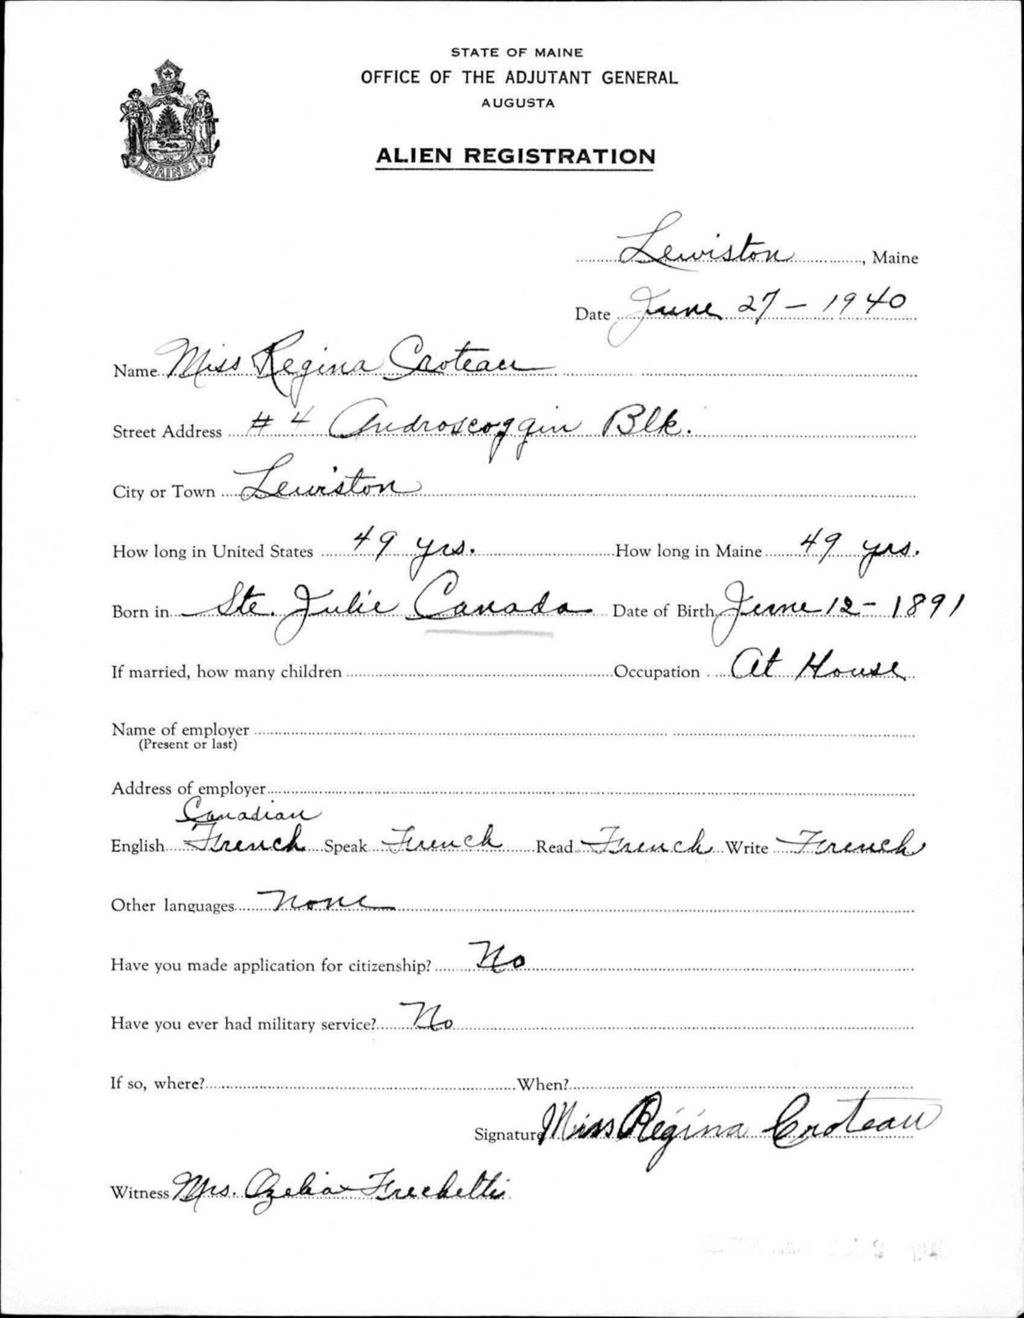 STATE OF MAINE
OFFICE OF THE ADJUTANT GENERAL
AUGUSTA
ALIEN REGISTRATION
MAINE
Lewiston, Maine
Date June 27 - 1940
Name Miss Regina Croteau
Street Address # 4 Androscoggin Blk.
City or Town Lewiston
How long in United States 49 yrs. How long in Maine 49 yrs.
Born in Ste. Julie Canada Date of Birth June 12 - 1891
If married, how many children Occupation At House
Name of employer
(Present or last)
Address of employer
Canadian
English French Speak French Read French Write French
Other languages None
Have you made application for citizenship? No
Have you ever had military service? No
If so, where? When?
Signature Miss Regina Croteau
Witness Mrs. Ozelia Frechette